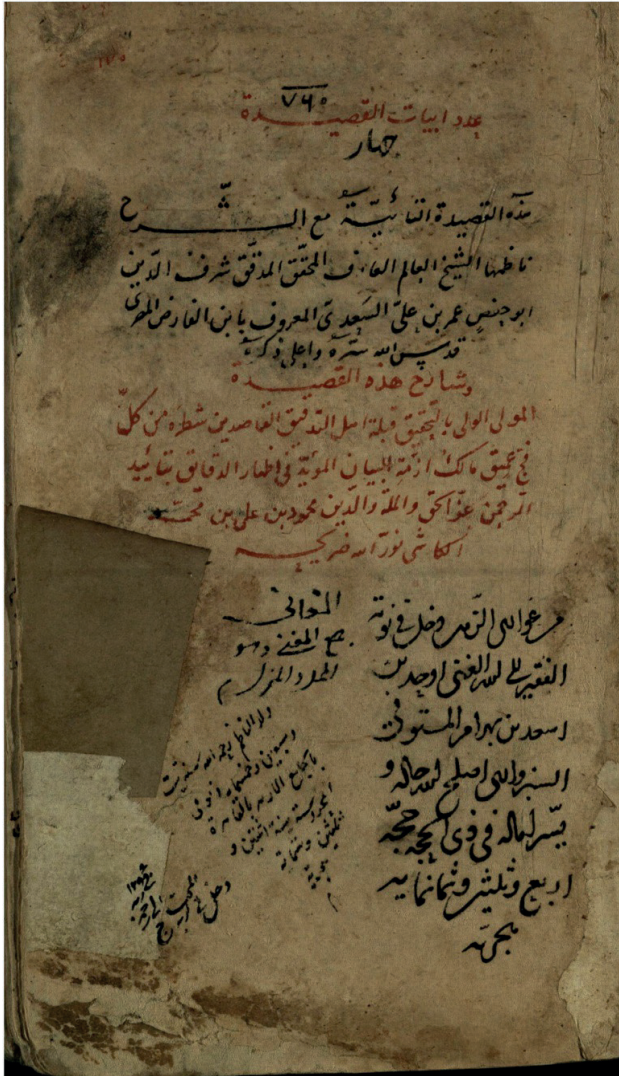 ٧٦٠
عدد ابيات القصيدة
چهار
هذه القصيدة التائيّة مع الشّرح
ناظمها الشيخ العالم العارف المحقّق المدقّق شرف الدّين
ابو حفص عمر بن علىّ السّعدىّ المعروف بابن الفارض المصرى
قدّس الله سرّه واعلى ذكره
وشارح هذه القصيدة
المولى الولى بالتحقيق قبلة اهل التدقيق القاصدين شطره من كلّ
فج عميق مالك ازمّة البيان المؤيّد فى اظهار الدقايق بتائييد
الرحمن عزّ الحق والملّة والدّين محمود بن على بن محمّد
الكاشى نوّر الله ضريحه
من عوالى الزمن ودخل فى نوبة
الفقير الى الله الغنى اوحد بن
اسعد بن بهرام المستوفى
السبزوارى اصلح الله حاله و
يسّر اماله فى ذى الحجه حجّة
اربع وثلثين وثمانمايه
هجريّه
المغانى
جمع المغنى وهو
المنزل
ولد الناظم رحمه الله سنة ست
وسبعين وخمسمايه وتوفى
بالقاهرة
سنة اثنتين و
ثلثين وستماية
هجرية